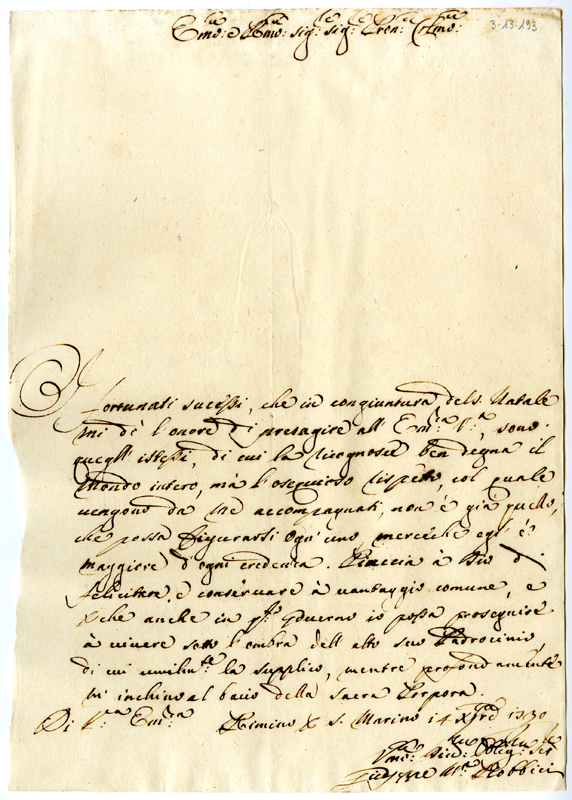 3-13-193
Emo: e Rmo: sig: sig: e Pron: Colmo:
I fortunati sucessi, che in congiuntura del s. Natale
mi dò l'onore di presagire all' Em:za V:a, sono
quegl' istessi, di cui la ricognosce ben degna il
Mondo intero, mà l'ossequioso rispetto, col quale
vengono da me accompagnati, non è già quello,
che possa figurarsi ogn' uno, mercèche egl' è
maggiore d'ogni credenza. Piaccia à Dio di
felicitare, e conservare à vantaggio comune, e
che anche in Governo io possa proseguire
à vivere sotto l'ombra dell' alto suo Padrocinio
di cui umilm:te la supplico, mentre profondamente
m' inchino al bacio della Sacra Porpora.
Di V:ra Em:za Rimino S. Marino 14 Xbre 1730
Umo: Oblig: Ser
Giuseppe